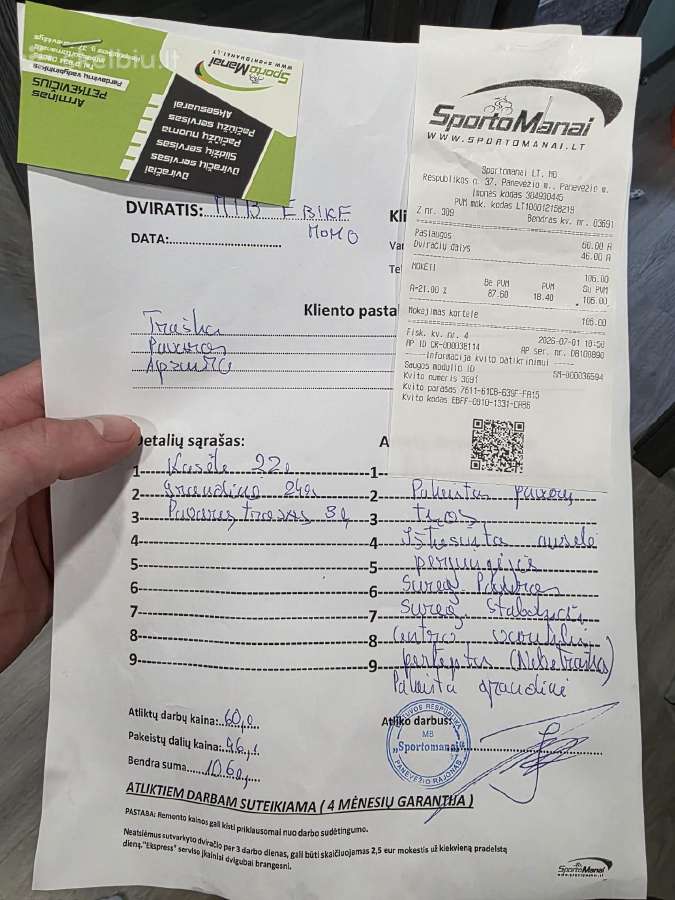 Arminas
PETKEVIČIUS
Pardavimų vadybininkas
Dviračiai
Dviračių servisas
Slidžių servisas
Pačiūžų nuoma
Pačiūžų servisas
Aksesuarai
SportoManai
WWW.SPORTOMANAI.LT
SportoManai
WWW.SPORTOMANAI.LT
Sportomanai LT, MB
Respublikos n. 37, Panevėžio m., Panevėžio m.
Įmonės kodas 304930445
PVM mok. kodas LT100012158219
Z nr. 309 Bendras kv. nr. 03691
Paslaugos 60.00 A
Dviračių dalys 46.00 A
MOKĖTI 106.00
Be PVM PVM Su PVM
A=21.00 % 87.60 18.40 106.00
Mokėjimas kortele 106.00
Fisk. kv. nr. 4 2026-07-01 10:50
AP ID CR-000038114 AP ser. nr. DB100890
Informacija kvito patikrinimui
Saugos modulio ID SM-000036594
Kvito numeris 3691
Kvito parašas 7611-61CB-639F-FA15
Kvito kodas EBFF-0910-1331-CA86
DVIRATIS: MTB EBIKE
MOMO
DATA:
Kliento pasta
Traška
Pavaros
Apžiūra
Detalių sąrašas:
1 Kasetė 22e
2 grandinė 24e
3 Pavarų trosas
4
5
6
7
8
9
1
2 Pakeistas pavarų
3 trosas
4 Ištiesinta auselė
5 perjungėjas
6 Sureg. Pavaros
7 Sureg. Stabdžiai
8 Centro
9 perteptas (Nebetraška)
Pakeista grandinė
Atliktų darbų kaina: 60,e
Pakeistų dalių kaina: 46,e
Bendra suma 106e
Atliko darbus:
MB
„Sportomanai“
PANEVĖŽIO RAJONAS
ATLIKTIEM DARBAM SUTEIKIAMA ( 4 MĖNESIŲ GARANTIJA )
PASTABA: Remonto kainos gali kisti priklausomai nuo darbo sudėtingumo.
Neatsiėmus sutvarkyto dviračio per 3 darbo dienas, gali būti skaičiuojamas 2,5 eur mokestis už kiekvieną pradelstą
dieną."Ekspress" serviso įkainiai dvigubai brangesni.
SportoManai